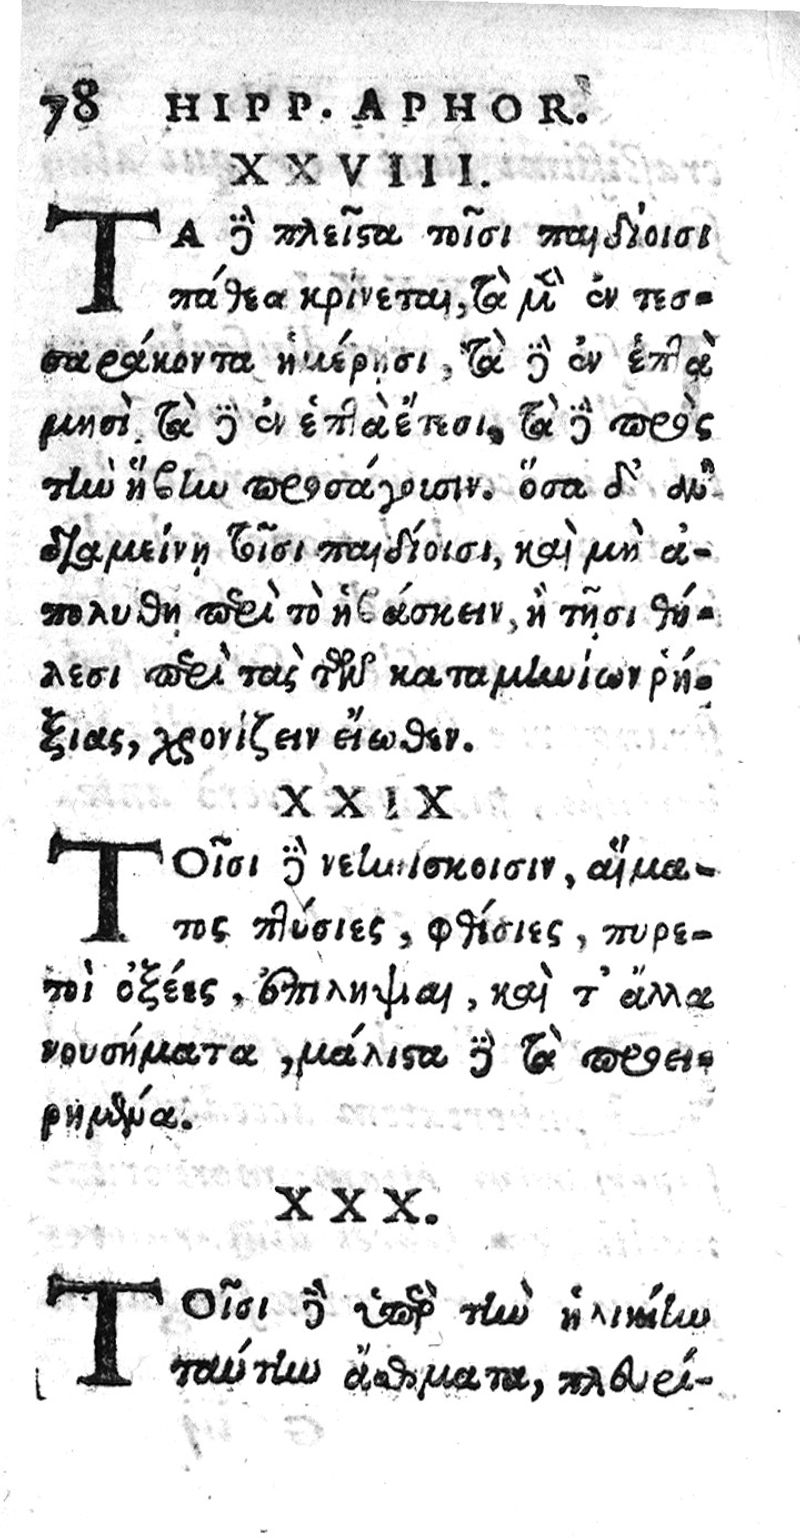 78 HIPP. APHOR.
XXVIII.
ΤΑ δὲ πλεῖστα τοῖσι παιδίοισι
πάθεα κρίνεται, τὰ μὲν ἐν τεσ-
σαράκοντα ἡμέρῃσι, τὰ δὲ ἐν ἑπτὰ
μησὶ, τὰ δὲ ἐν ἑπτὰ ἔτεσι, τὰ δὲ πρὸς
τὴν ἥβην προσάγουσιν. ὅσα δ' ἂν
διαμείνῃ τοῖσι παιδίοισι, καὶ μὴ ἀ-
πολυθῇ περὶ τὸ ἡβάσκειν, ἢ τῇσι θή-
λεσι περὶ τὰς τῶν καταμηνίων ῥή-
ξιας, χρονίζειν εἴωθεν.
XXIX
ΤΟῖσι δὲ νεηνίσκοισιν, αἵμα-
τος πτύσιες, φθίσιες, πυρε-
τοὶ ὀξέες, ἐπιληψίαι, καὶ τ' ἄλλα
νουσήματα, μάλιστα δὲ τὰ προει-
ρημένα.
XXX.
ΤΟῖσι δὲ ὑπὲρ τὴν ἡλικίην
ταύτην ἄσθματα, πλευρί-